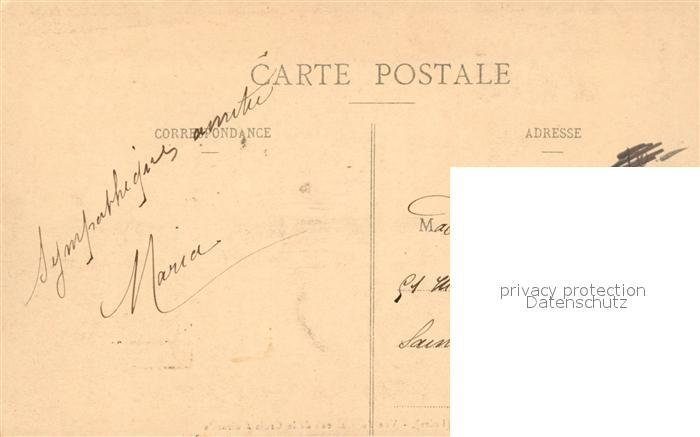 CARTE POSTALE
CORRESPONDANCE
ADRESSE
Sympathique amitié
Maria
Ma
51
Sain
privacy protection
Datenschutz